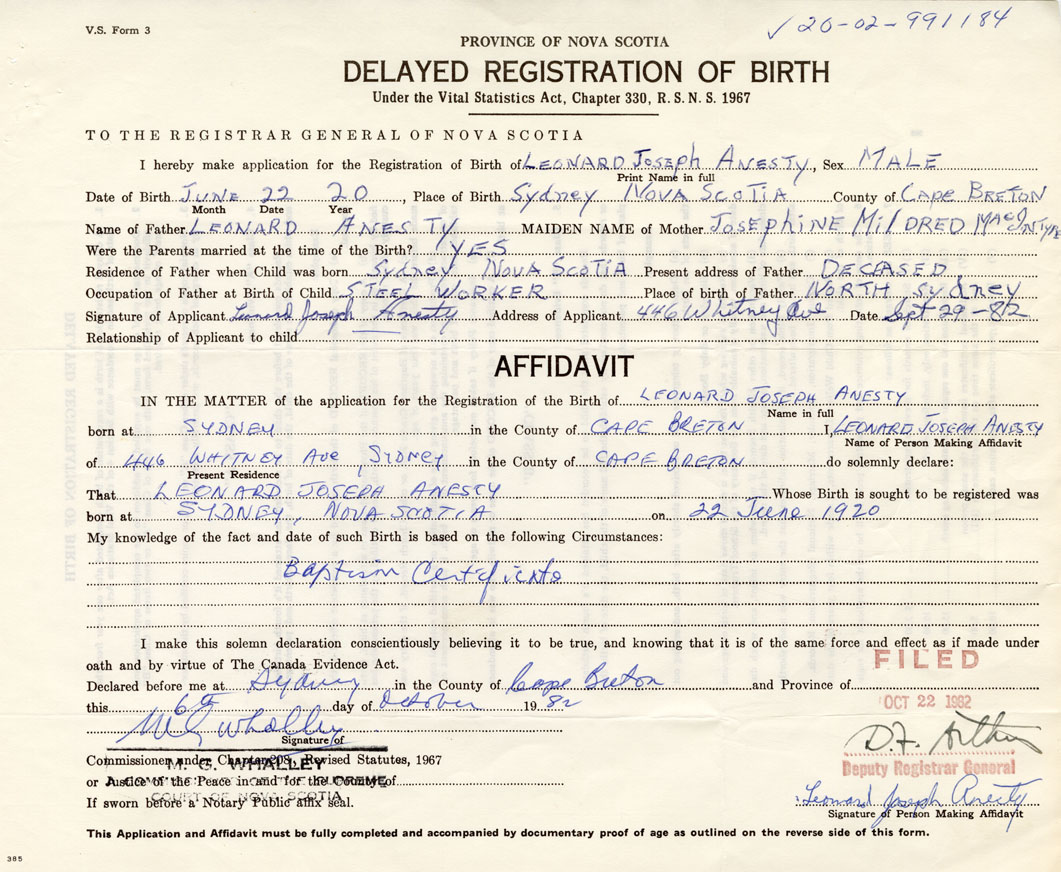 V.S. Form 3
✓ 20-02-991184
PROVINCE OF NOVA SCOTIA
DELAYED REGISTRATION OF BIRTH
Under the Vital Statistics Act, Chapter 330, R. S. N. S. 1967
TO THE REGISTRAR GENERAL OF NOVA SCOTIA
I hereby make application for the Registration of Birth of LEONARD JOSEPH ANESTY, Sex MALE
Print Name in full
Date of Birth JUNE 22 20, Place of Birth Sydney NOVA SCOTIA County of CAPE BRETON
Month Date Year
Name of Father LEONARD ANESTY MAIDEN NAME of Mother JOSEPHINE MILDRED
Were the Parents married at the time of the Birth? YES
Residence of Father when Child was born Sydney NOVA SCOTIA Present address of Father DECEASED
Occupation of Father at Birth of Child STEEL WORKER Place of birth of Father NORTH Sydney
Signature of Applicant Leonard Joseph Anesty Address of Applicant 446 Whitney Ave Date Sept 29-82
Relationship of Applicant to child
AFFIDAVIT
IN THE MATTER of the application for the Registration of the Birth of LEONARD JOSEPH ANESTY
Name in full
born at SYDNEY in the County of CAPE BRETON I, LEONARD JOSEPH ANESTY
Name of Person Making Affidavit
of 446 WHITNEY Ave, SYDNEY in the County of CAPE BRETON do solemnly declare:
Present Residence
That LEONARD JOSEPH ANESTY Whose Birth is sought to be registered was
born at SYDNEY, NOVA SCOTIA on 22 June 1920
My knowledge of the fact and date of such Birth is based on the following Circumstances:
Baptism
I make this solemn declaration conscientiously believing it to be true, and knowing that it is of the same force and effect as if made under
oath and by virtue of The Canada Evidence Act.
FILED
Declared before me at Sydney in the County of Cape Breton and Province of
this day of October 19 82
OCT 22 1982
M G Whalley
Signature of
Commissioner under Chapter 208, Revised Statutes, 1967
M. G. WHALLEY
or Justice of the Peace in and for the County of
COURT OF NOVA SCOTIA
If sworn before a Notary Public affix seal.
Deputy Registrar General
Leonard Joseph Anesty
Signature of Person Making Affidavit
This Application and Affidavit must be fully completed and accompanied by documentary proof of age as outlined on the reverse side of this form.
385